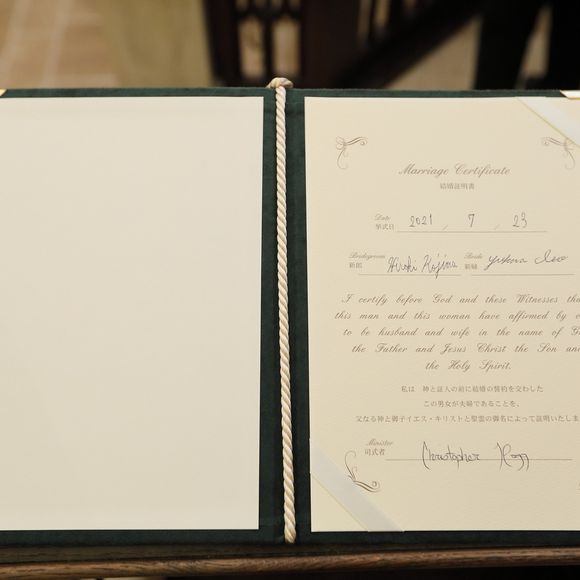 Marriage Certificate
結婚証明書
Date
挙式日 2021 / 7 / 23
Bridegroom Bride
新郎 Hiroki Kojima 新婦
I certify before God and these Witnesses
this man and this woman have affirmed by
to be husband and wife in the name of
the Father and Jesus Christ the Son and
the Holy Spirit.
私は 神と証人の前に結婚の誓約を交わした
この男女が夫婦であることを、
父なる神と御子イエス・キリストと聖霊の御名によって証明いたしま
Minister
司式者 Christopher